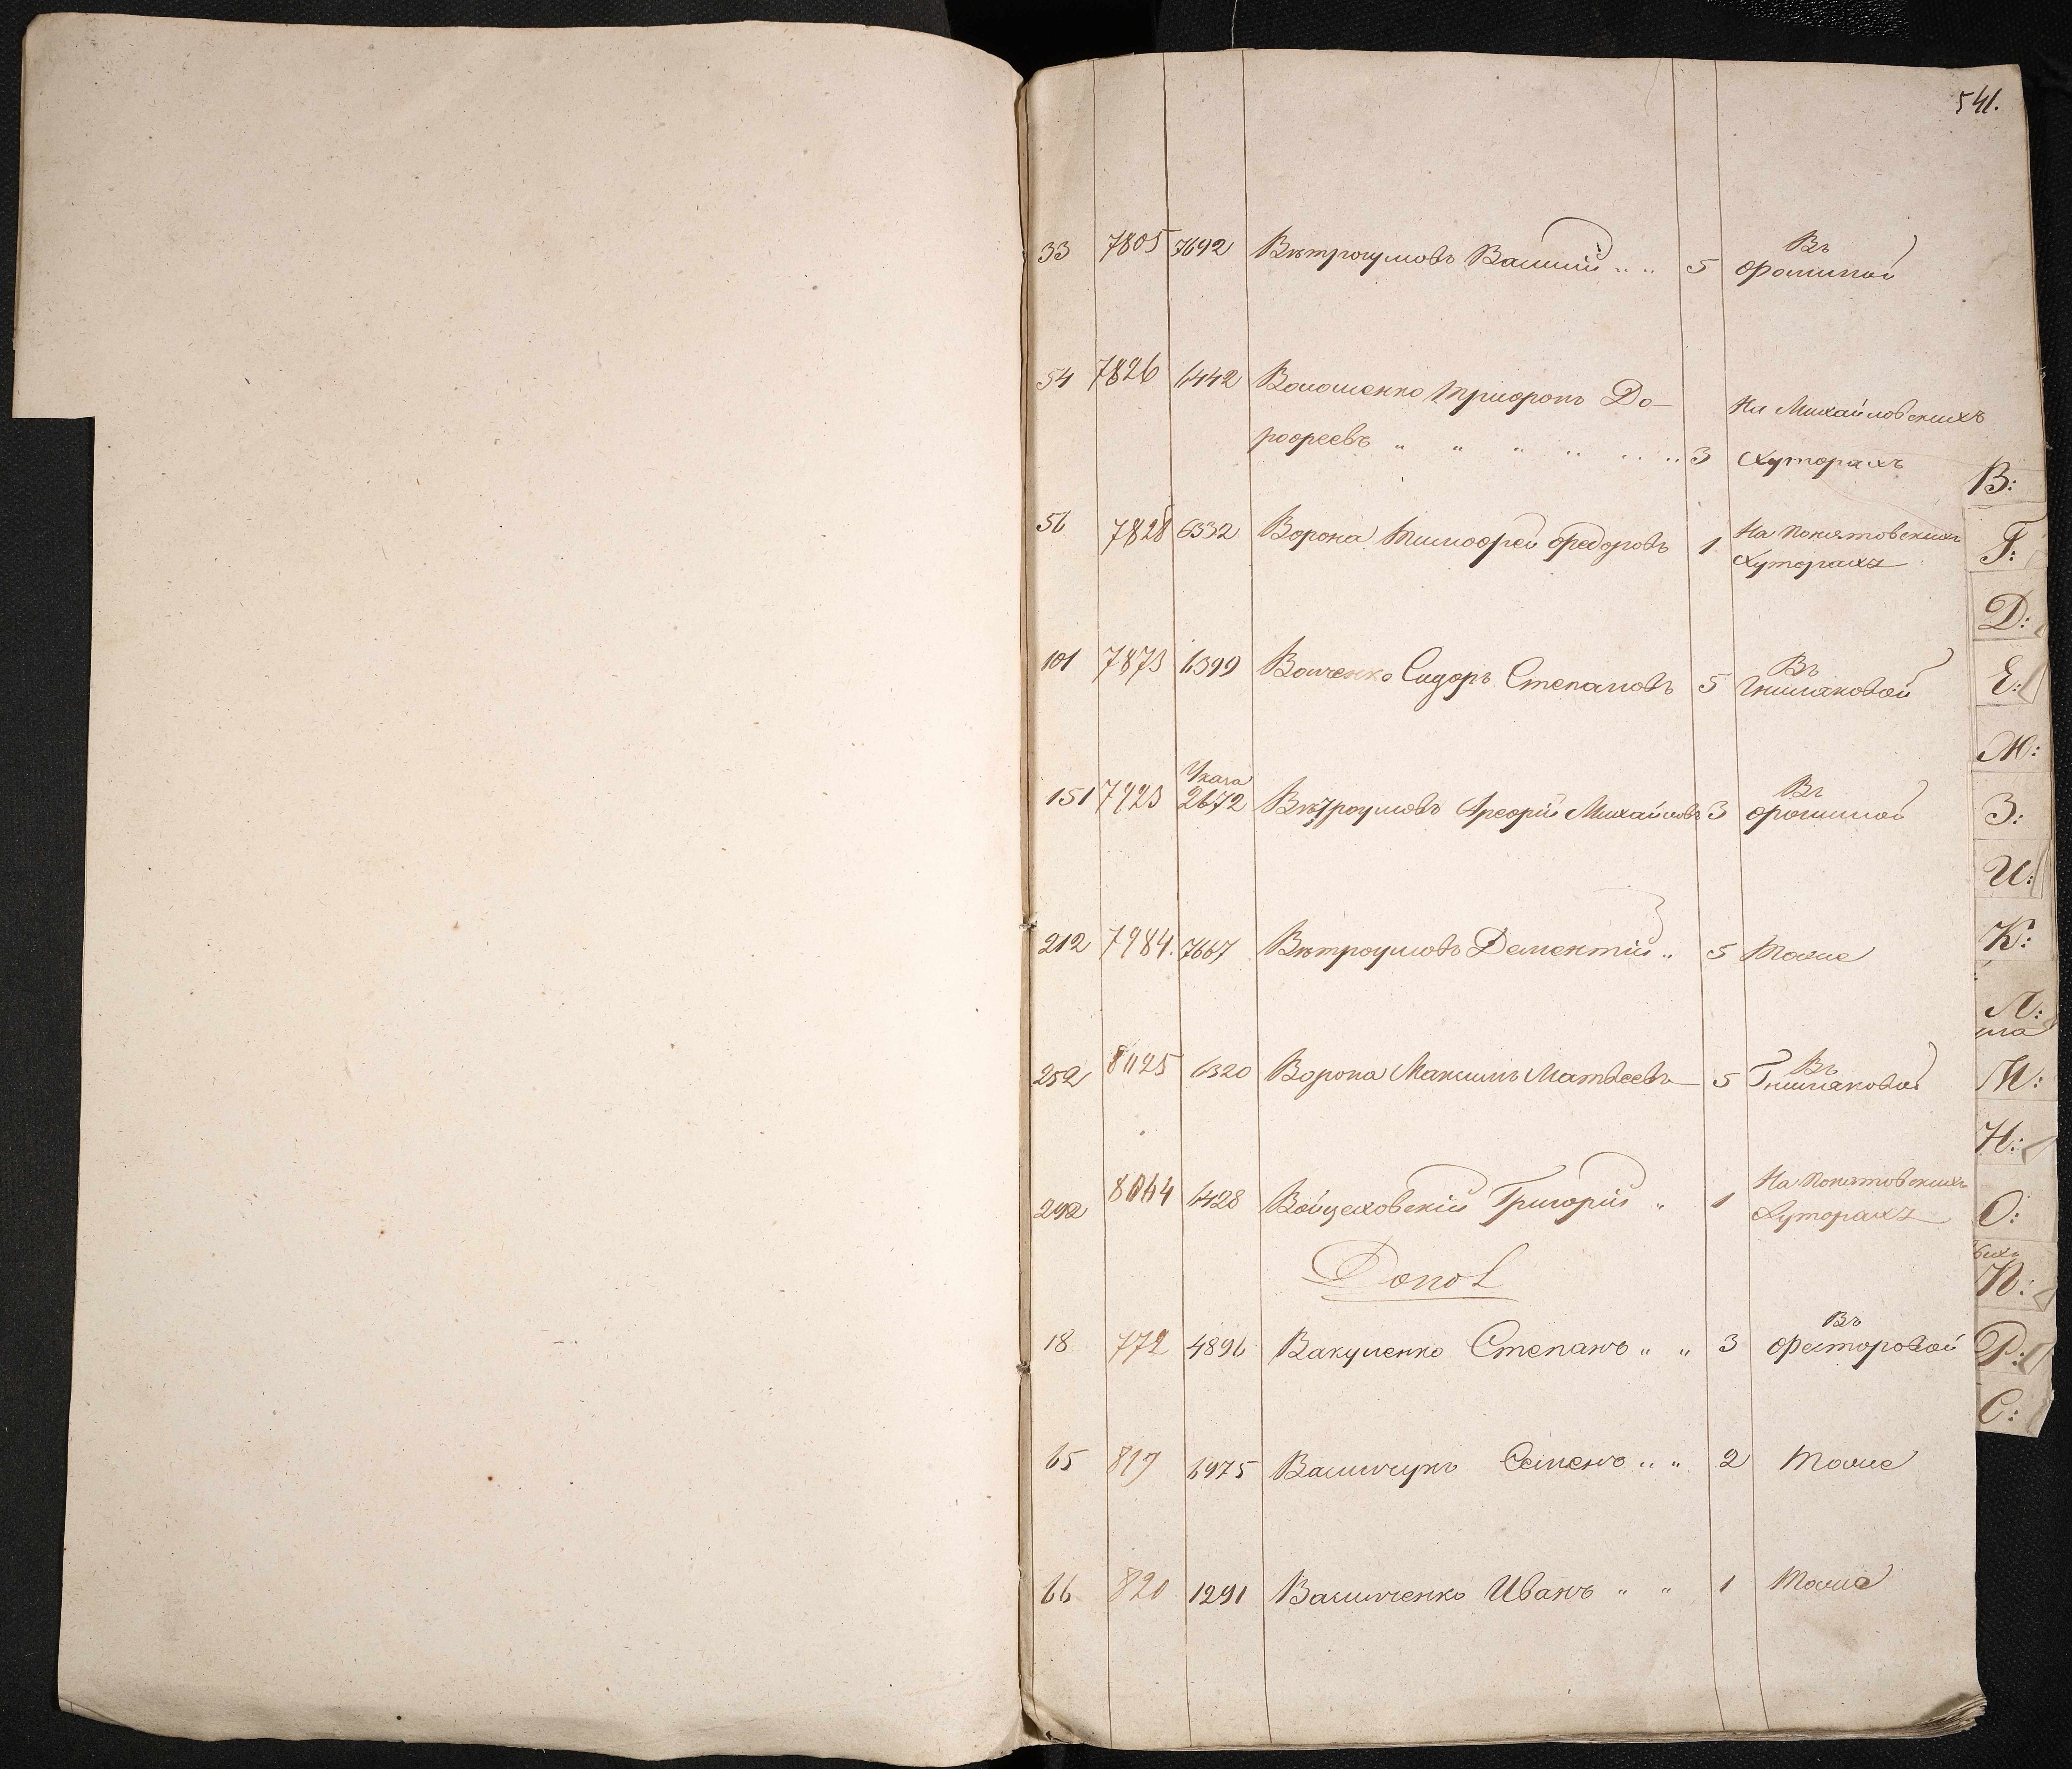 541.
33 7805 7692 Вѣтроумовъ Василій „ „ 5 Въ Фоминой
54 7826 6442 Волошенко Трифонъ До-
рофеевъ „ „ „ „ „ „ 3 На Михайловскихъ Хуторахъ
56 7828 6332 Ворона Тимофей Федоровъ 1 На Понятовскихъ Хуторахъ
101 7873 6399 Волченко Сидоръ Степановъ 5 Въ Гниляковой
151 7923 Указа 2672 Вѣтроумовъ Арефій Михайловъ 3 Въ Фоминой
212 7984. 7667 Вѣтроумовъ Дементій „ 5 Тоже
252 8025 6320 Ворона Максимъ Матвеевъ 5 Въ Гниляковой
292 8064 6428 Войцеховскій Григорій „ 1 На Понятовскихъ Хуторахъ
18 772 4896 Вакуленко Степанъ „ „ 3 Въ Фесторовой
65 819 6975 Василичукъ Семенъ „ „ 2 Тоже
66 820 1291 Василиченко Иванъ „ „ 1 Тоже
В:
Г:
Д:
Е:
Ж:
З:
И:
К:
Л:
М:
Н:
О:
П:
Р:
С: